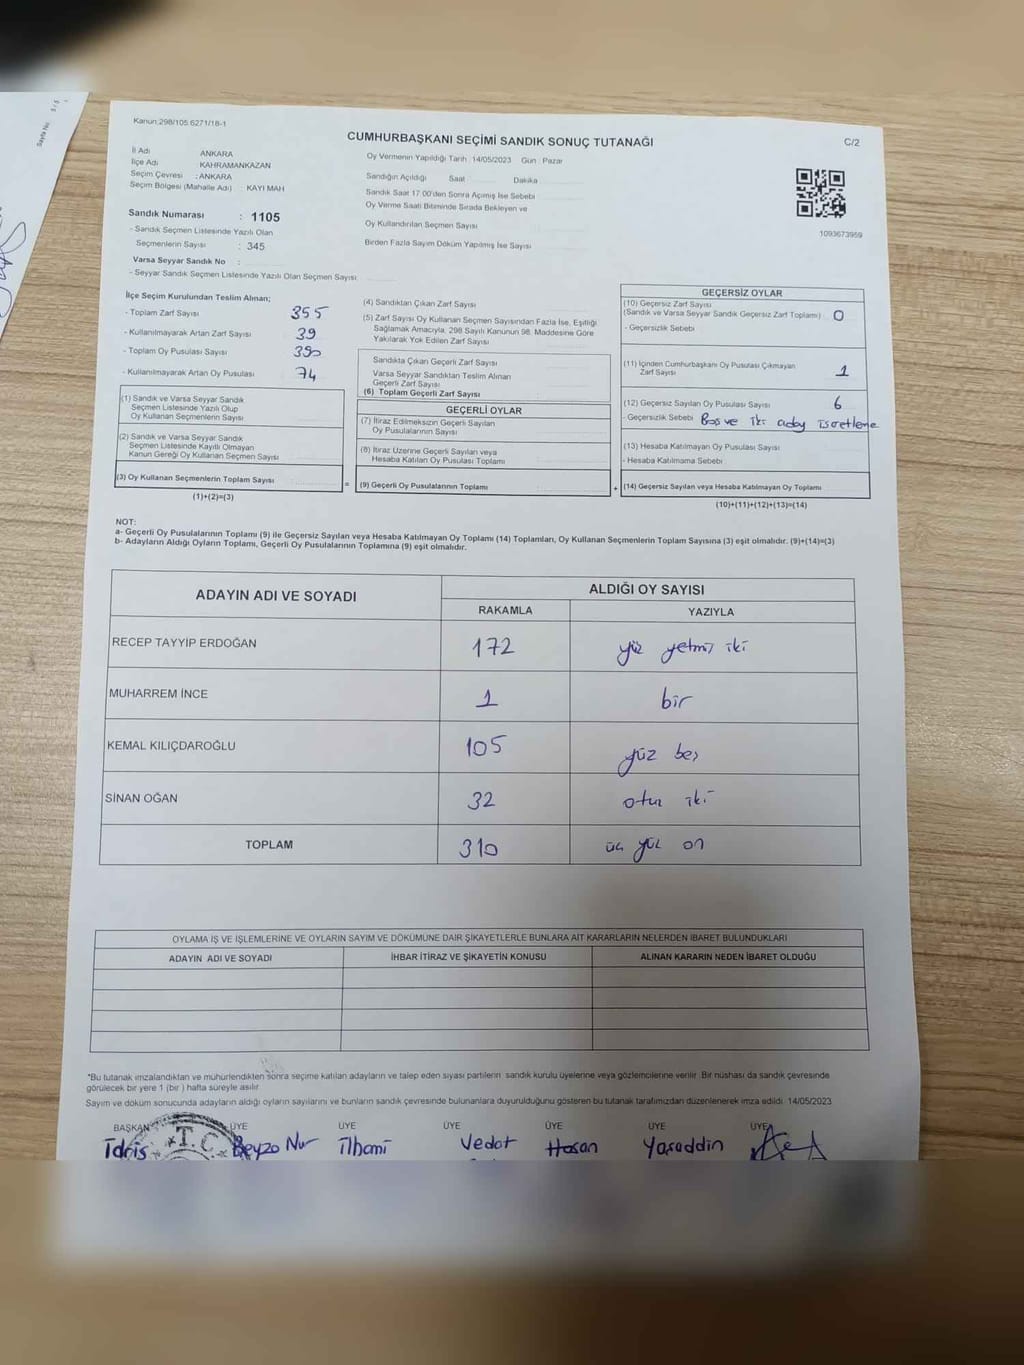 Kanun:298/105 6271/18-1
CUMHURBAŞKANI SEÇİMİ SANDIK SONUÇ TUTANAĞI
C/2
İl Adı ANKARA
İlçe Adı KAHRAMANKAZAN
Seçim Çevresi : ANKARA
Seçim Bölgesi (Mahalle Adı) KAYI MAH
Sandık Numarası : 1105
- Sandık Seçmen Listesinde Yazılı Olan
Seçmenlerin Sayısı : 345
Varsa Seyyar Sandık No :
- Seyyar Sandık Seçmen Listesinde Yazılı Olan Seçmen Sayısı:
Oy Vermenin Yapıldığı Tarih 14/05/2023 Gün : Pazar
Sandığın Açıldığı Saat Dakika
Sandık Saat 17.00'den Sonra Açımış İse Sebebi
Oy Verme Saati Bitiminde Sırada Bekleyen ve
Oy Kullandırılan Seçmen Sayısı
Birden Fazla Sayım Döküm Yapılmış İse Sayısı
1093673959
Sayfa No: 5/5
İlçe Seçim Kurulundan Teslim Alınan;
- Toplam Zarf Sayısı 355
- Kullanılmayarak Artan Zarf Sayısı 39
- Toplam Oy Pusulası Sayısı 390
- Kullanılmayarak Artan Oy Pusulası 74
(1) Sandık ve Varsa Seyyar Sandık
Seçmen Listesinde Yazılı Olup
Oy Kullanan Seçmenlerin Sayısı
(2) Sandık ve Varsa Seyyar Sandık
Seçmen Listesinde Kayıtlı Olmayan
Kanun Gereği Oy Kullanan Seçmen Sayısı
(3) Oy Kullanan Seçmenlerin Toplam Sayısı
(1)+(2)=(3)
=
(4) Sandıktan Çıkan Zarf Sayısı
(5) Zarf Sayısı Oy Kullanan Seçmen Sayısından Fazla İse, Eşitliği
Sağlamak Amacıyla, 298 Sayılı Kanunun 98. Maddesine Göre
Yakılarak Yok Edilen Zarf Sayısı
Sandıkta Çıkan Geçerli Zarf Sayısı
Varsa Seyyar Sandıktan Teslim Alınan
Geçerli Zarf Sayısı
(6) Toplam Geçerli Zarf Sayısı
GEÇERLİ OYLAR
(7) İtiraz Edilmeksizin Geçerli Sayılan
Oy Pusulalarının Sayısı
(8) İtiraz Üzerine Geçerli Sayılan veya
Hesaba Katılan Oy Pusulası Toplamı
(9) Geçerli Oy Pusulalarının Toplamı
+
GEÇERSİZ OYLAR
(10) Geçersiz Zarf Sayısı
(Sandık ve Varsa Seyyar Sandık Geçersiz Zarf Toplamı) 0
- Geçersizlik Sebebi
(11) İçinden Cumhurbaşkanı Oy Pusulası Çıkmayan
Zarf Sayısı 1
(12) Geçersiz Sayılan Oy Pusulası Sayısı 6
- Geçersizlik Sebebi Boş ve iki aday isaretleme
(13) Hesaba Katılmayan Oy Pusulası Sayısı
- Hesaba Katılmama Sebebi
(14) Geçersiz Sayılan veya Hesaba Katılmayan Oy Toplamı
(10)+(11)+(12)+(13)=(14)
NOT:
a- Geçerli Oy Pusulalarının Toplamı (9) ile Geçersiz Sayılan veya Hesaba Katılmayan Oy Toplamı (14) Toplamları, Oy Kullanan Seçmenlerin Toplam Sayısına (3) eşit olmalıdır. (9)+(14)=(3)
b- Adayların Aldığı Oyların Toplamı, Geçerli Oy Pusulalarının Toplamına (9) eşit olmalıdır.
ADAYIN ADI VE SOYADI ALDIĞI OY SAYISI
RAKAMLA YAZIYLA
RECEP TAYYİP ERDOĞAN 172 yüz yetmiş iki
MUHARREM İNCE 1 bir
KEMAL KILIÇDAROĞLU 105 yüz beş
SİNAN OĞAN 32 otuz iki
TOPLAM 310 üç yüz on
OYLAMA İŞ VE İŞLEMLERİNE VE OYLARIN SAYIM VE DÖKÜMÜNE DAİR ŞİKAYETLERLE BUNLARA AİT KARARLARIN NELERDEN İBARET BULUNDUKLARI
ADAYIN ADI VE SOYADI İHBAR İTİRAZ VE ŞİKAYETİN KONUSU ALINAN KARARIN NEDEN İBARET OLDUĞU
*Bu tutanak imzalandıktan ve mühürlendikten sonra seçime katılan adayların ve talep eden siyasi partilerin sandık kurulu üyelerine veya gözlemcilerine verilir. Bir nüshası da sandık çevresinde
görülecek bir yere 1 (bir ) hafta süreyle asılır.
Sayım ve döküm sonucunda adayların aldığı oyların sayılarını ve bunların sandık çevresinde bulunanlara duyurulduğunu gösteren bu tutanak tarafımızdan düzenlenerek imza edildi. 14/05/2023
BAŞKAN ÜYE ÜYE ÜYE ÜYE ÜYE ÜYE
İdris T.C. Beyza Nur İlhami Vedat Hasan Yasaddin